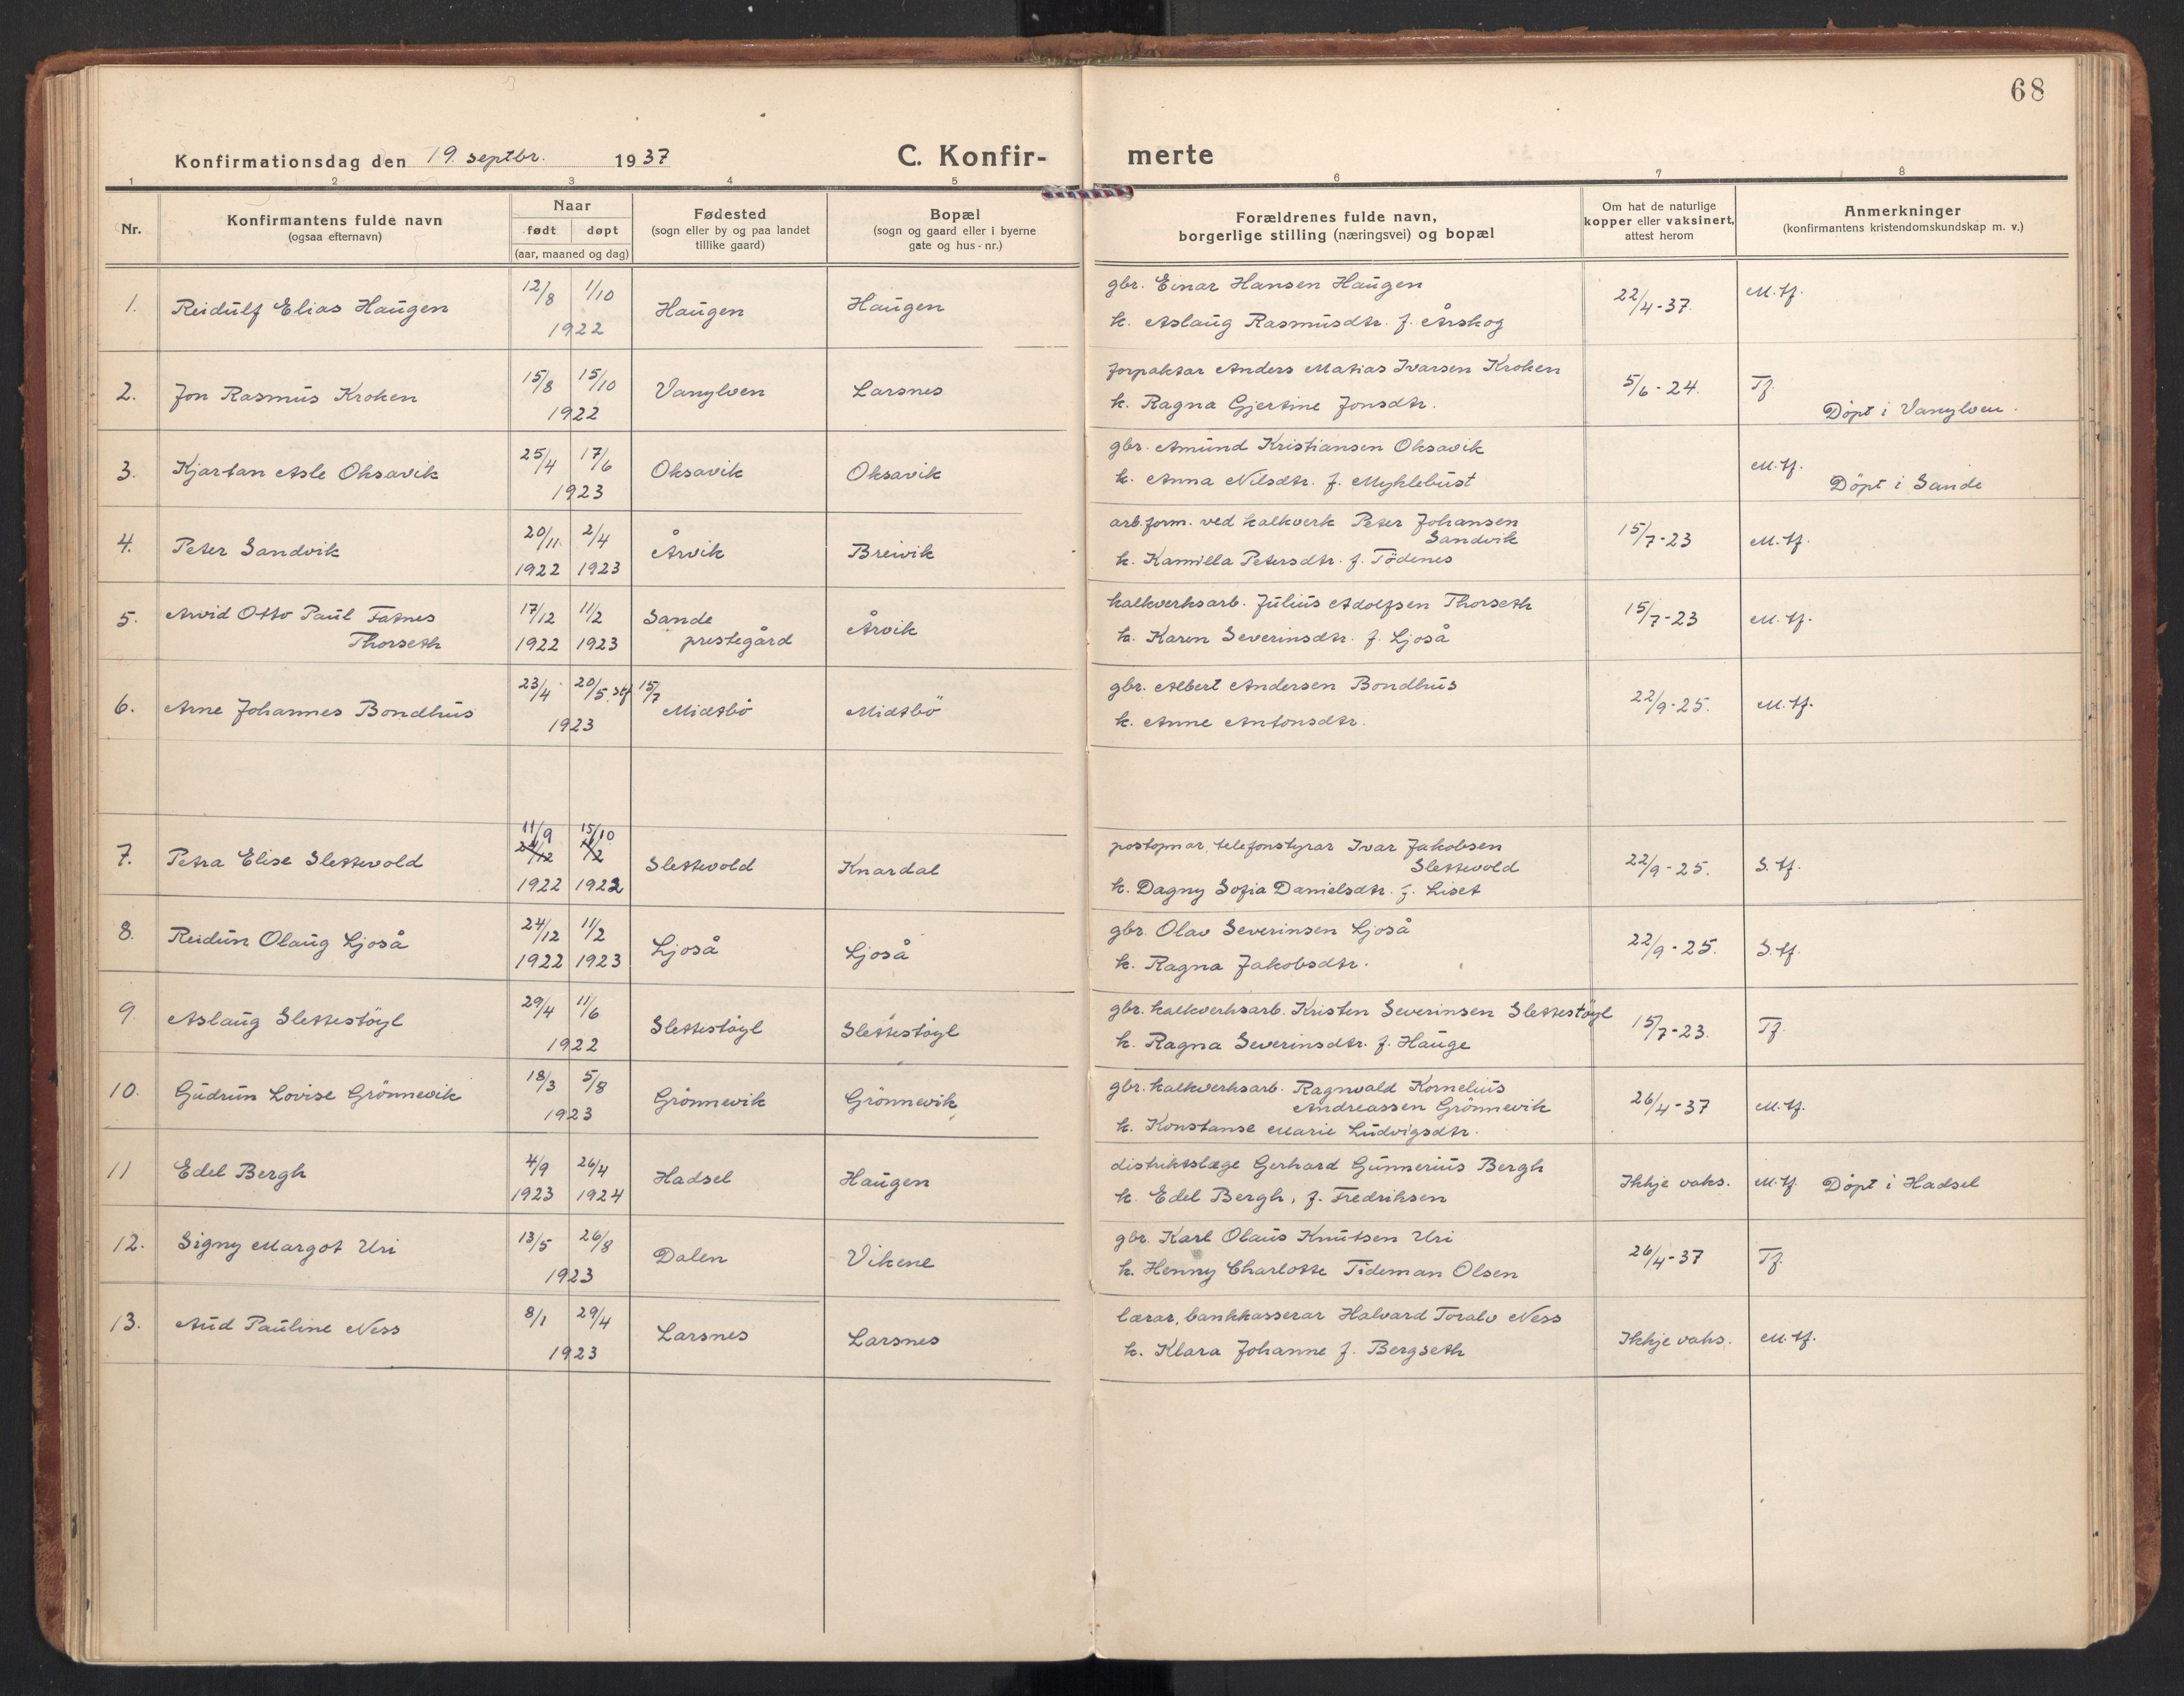 68
Konfirmationsdag den 19. septbr. 1937
C. Konfir- merte
1 2 3 4 5 6 7 8
Nr.
Konfirmantens fulde navn
(ogsaa efternavn)
Naar
født døpt
(aar, maaned og dag)
Fødested
(sogn eller by og paa landet
tillike gaard)
Bopæl
(sogn og gaard eller i byerne
gate og hus - nr.)
Forældrenes fulde navn,
borgerlige stilling (næringsvei) og bopæl
Om hat de naturlige
kopper eller vaksinert,
attest herom
Anmerkninger
(konfirmantens kristendomskundskap m. v.)
1. Reidulf Elias Haugen 12/8 1/10 1922 Haugen Haugen
gbr. Einar Hansen Haugen
k. Aslaug Rasmusdtr. f. Årskog
22/4-37. M.tf.
2. Jon Rasmus Kroken 15/8 15/10 1922 Vanylven Larsnes
forpaktar Anders Matias Ivarsen Kroken
k. Ragna Gjertine Jonsdtr.
5/6-24. Tf. Döpt i Vanylven.
3. Kjartan Asle Oksavik 25/4 17/6 1923 Oksavik Oksavik
gbr. Amund Kristiansen Oksavik
k. Anna Nilsdtr. f. Myklebust
M.tf. Döpt i Sande
4. Peter Sandvik 20/11 2/4 1922 1923 Årvik Breivik
arb.form. ved kalkverk Peter Johansen
Sandvik
k. Kamilla Petersdtr. f. Tödenes
15/7-23 M.tf.
5. Arvid Otto Paul Fatnes
Thorseth
17/12 11/2 1922 1923 Sande
prestegård
Årvik
kalkverksarb. Julius Adolfsen Thorseth
k. Karen Severinsdtr. f. Ljoså
15/7-23 M.tf.
6. Arne Johannes Bondhus 23/4 20/5. stf 15/7 1923 Midtbö Midtbö
gbr. Albert Andersen Bondhus
k. Anne Antonsdtr.
22/9-25. M.tf.
7. Petra Elise Slettevold 11/9 15/10
24/12 11/2
1922 1922 Slettevold Knardal
postopnar, telefonstyrar Ivar Jakobsen
Slettevold
k. Dagny Sofia Danielsdtr. f. Liset
22/9-25. S.tf.
8. Reidun Olaug Ljoså 24/12 11/2 1922 1923 Ljoså Ljoså
gbr. Olav Severinsen Ljoså
k. Ragna Jakobsdtr.
22/9-25. S.tf.
9 Aslaug Slettestöyl 29/4 11/6 1922 Slettestöyl Slettestöyl
gbr. kalkverksarb. Kristen Severinsen Slettestöyl
k. Ragna Severinsdtr. f. Hauge
15/7-23. Tf.
10. Gudrun Lovise Grönnevik 18/3 5/8 1923 Grönnevik Grönnevik
gbr. kalkverksarb. Ragnvald Kornelius
Andreassen Grönnevik
k. Konstanse Marie Ludvigsdtr.
26/4-37 M.tf.
11 Edel Bergh 4/9 26/4 1923 1924 Hadsel Haugen
distriktslæge Gerhard Gunnerius Bergh
k. Edel Bergh, f. Fredriksen
Ikkje vaks. M.tf. Döpt i Hadsel
12. Signy Margot Uri 13/5 26/8 1923 Dalen Vikene
gbr. Karl Olaus Knutsen Uri
k. Henny Charlotte Tideman Olsen
26/4-37 Tf.
13. Aud Pauline Ness 8/1 29/4 1923 Larsnes Larsnes
lærar, bankkasserar Halvard Toralv Ness
k. Klara Johanne f. Bergseth
Ikkje vaks. M.tf.